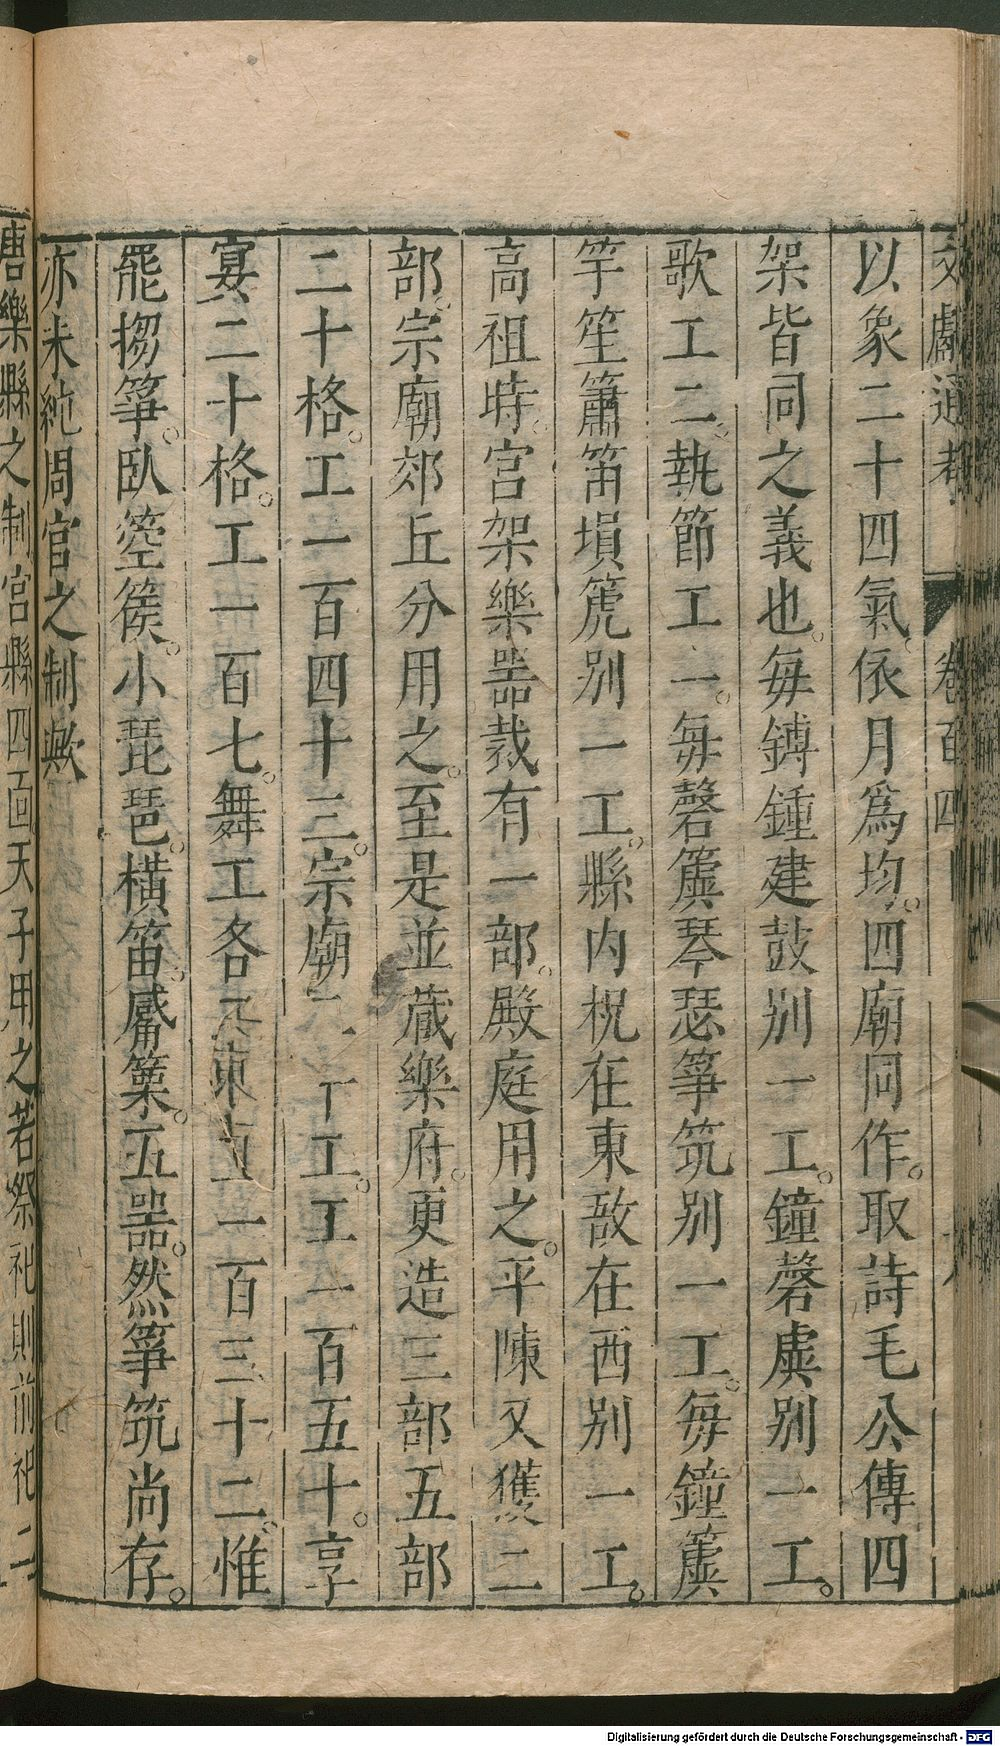 文獻通考 卷百四
以象二十四氣依月爲均。四廟同作。取詩毛公傳四
架皆同之義也。每鎛鍾建鼓别一工。鐘磬虡别一工。
歌工二。執節工一。每磬簴琴瑟箏筑别一工。每鐘簴
竽笙簫笛塤篪别一工。縣内柷在東敔在西别一工。
高祖時。宮架樂噐裁有一部。殿庭用之。平陳又獲二
部。宗廟郊丘分用之。至是並蔵樂府。更造三部五部
二十格。工一百四十三。宗廟二 工。工一百五十。享
宴二十格。工一百七。舞工各 一百三十二。惟
罷搊箏。臥箜篌。小琵琶。橫笛。觱篥。五噐。然箏筑尚存。
亦未純周官之制歟
唐樂縣之制宮縣四面天子用之若祭祀則前祀二
Digitalisierung gefördert durch die Deutsche Forschungsgemeinschaft - DFG